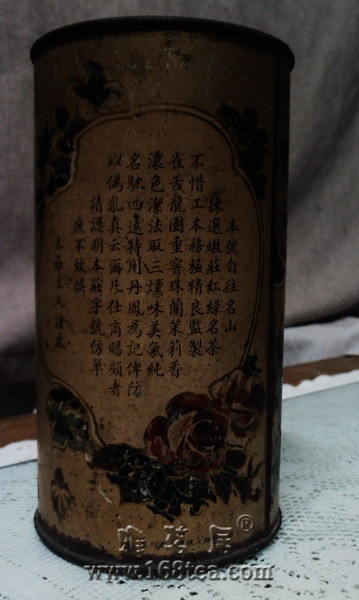 本號自往名山
揀選嫩莊紅綠名茶
不惜工本務極精良監製
雀舌龍團重窨珠蘭茉莉香
濃色潔法取三燻味美氣純
名馳四遠特用丹鳳為記俾防
以偽亂真云爾凡仕商賜顧者
請認明本莊字號仿單
庶不致悞
本莊主人謹啟
®
www.168tea.com